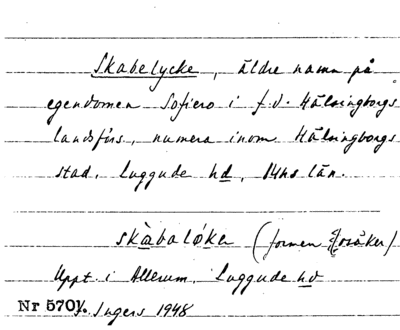 Skabelycke, äldre namn på
egendomen Sofiero i f.d. Hälsingborgs
landsförs., numera inom Hälsingborgs
stad. Luggude hd, M-hs län.
skàbaløka (formen osäker)
Uppt. i Allerum, Luggude hd
Nr 5701. Ingers 1948